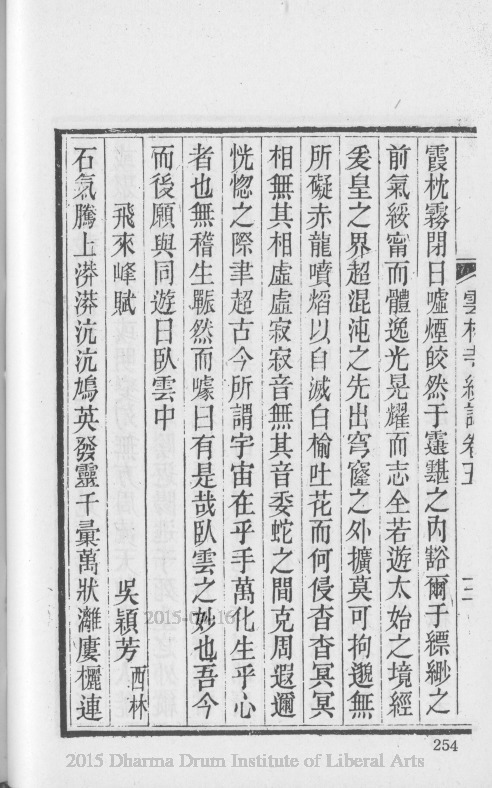 雲林寺續誌卷五
三
霞枕霧閉日噓煙皎然于靉靆之內豁爾于縹緲之
前氣綏甯而體逸光晃耀而志全若遊太始之境經
爰皇之界超混沌之先出穹窿之外擴莫可拘邈無
所礙赤龍噴熖以自滅白榆吐花而何侵杳杳冥冥
相無其相虛虛寂寂音無其音委蛇之間克周遐邇
恍惚之際聿超古今所謂宇宙在乎手萬化生乎心
者也無稽生冁然而噱曰有是哉臥雲之妙也吾今
而後願與同遊日臥雲中
飛來峰賦
吳穎芳 西林
石氣騰上漭漭沆沆鳩英發靈千彙萬狀灕廔欐連
254
2015 Dharma Drum Institute of Liberal Arts